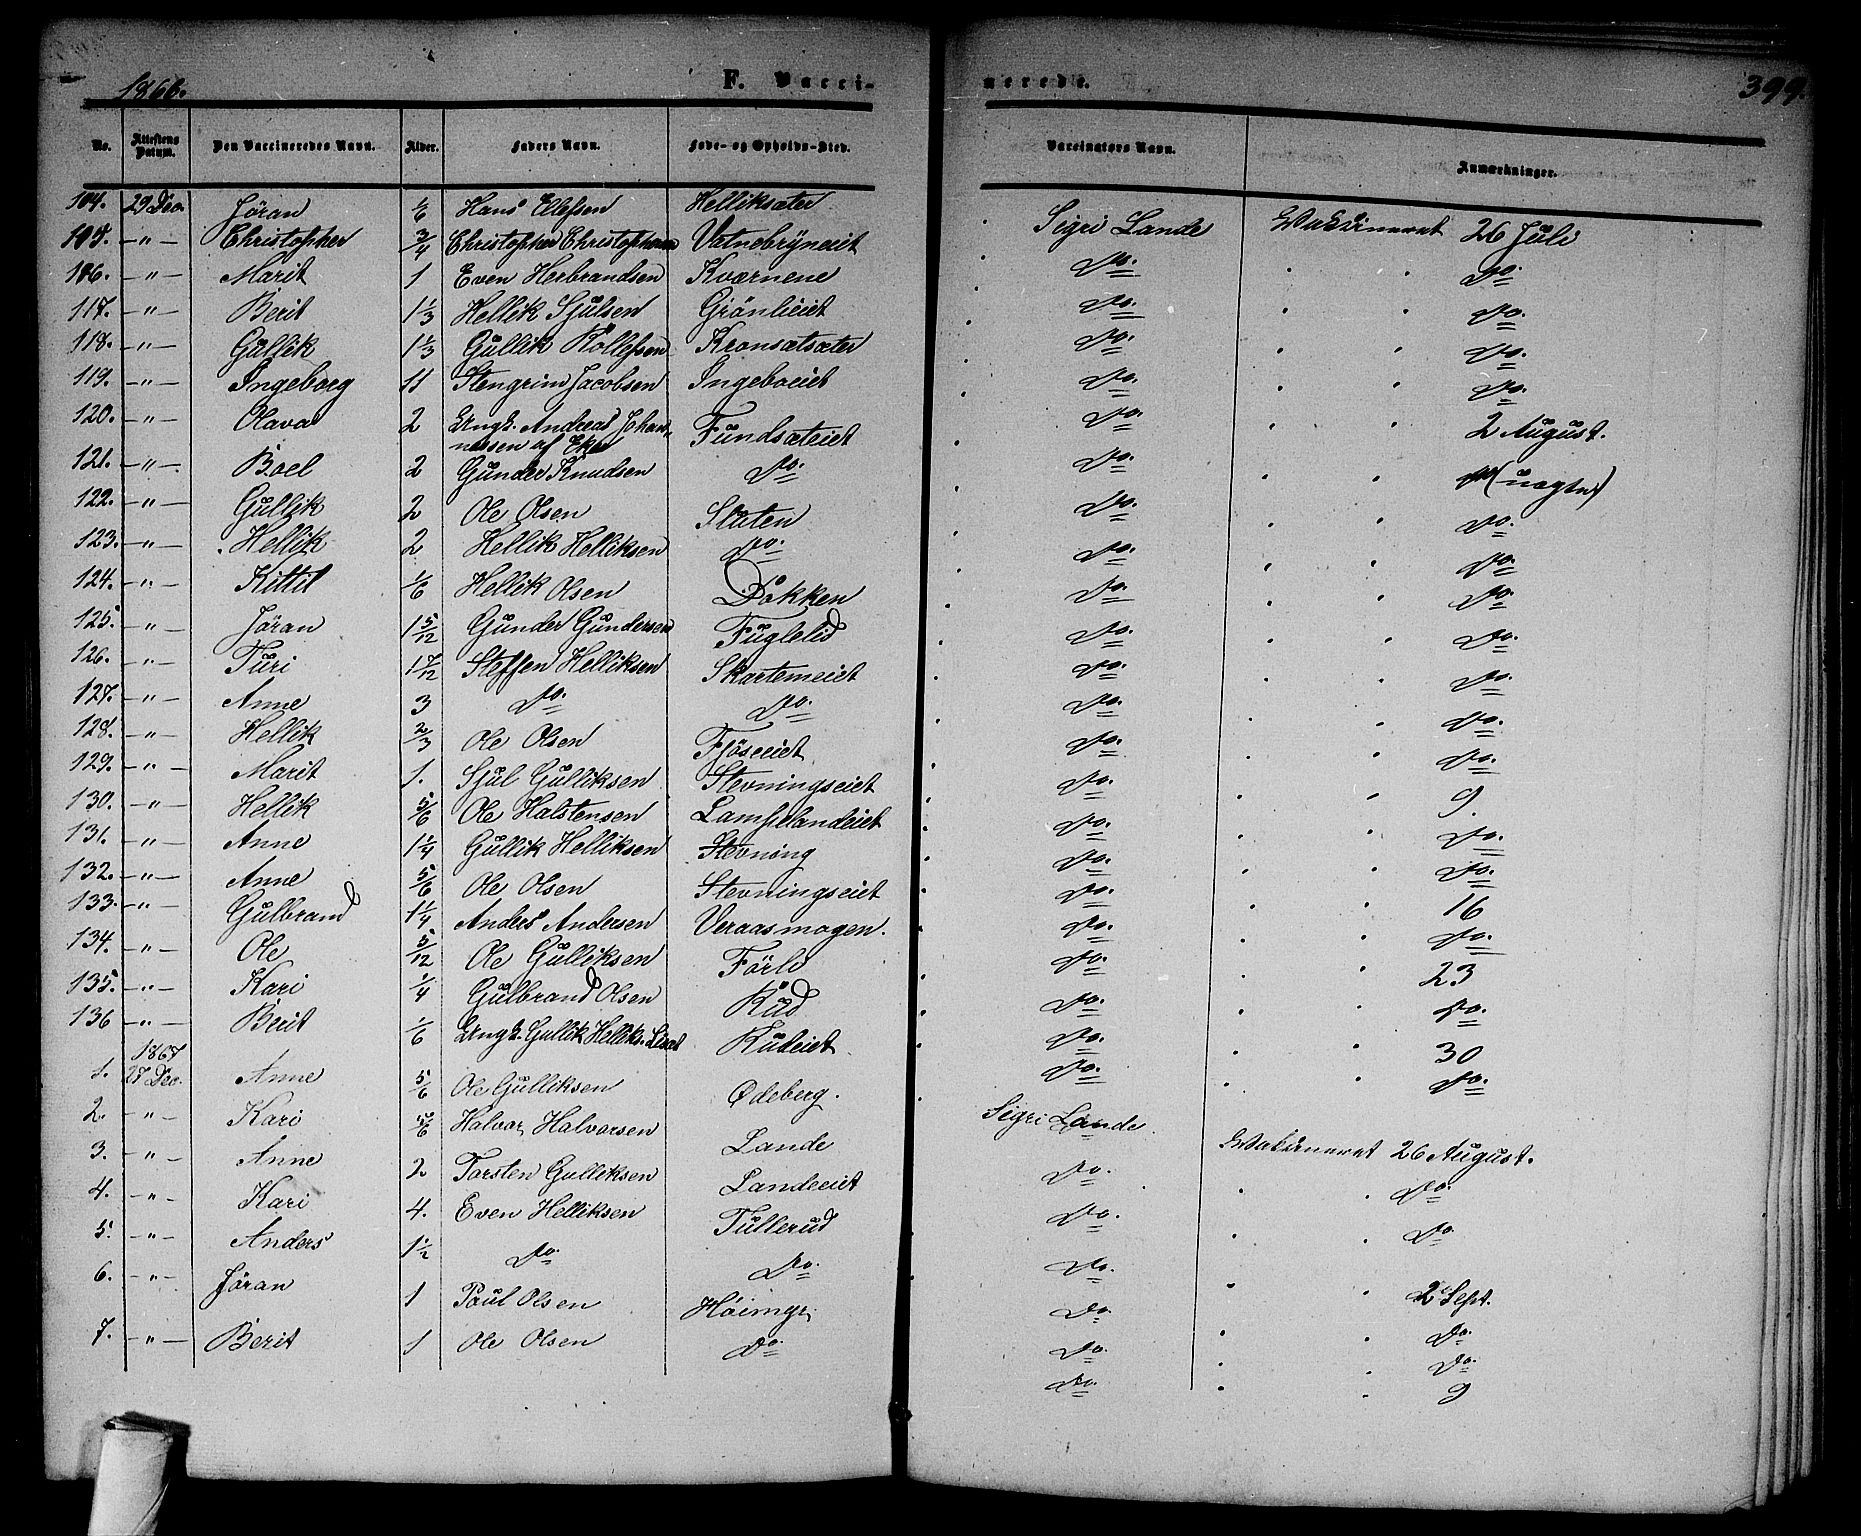 1866.
F. Vacci-
nerede.
399.
No. Attestens Datum. Den Vaccineredes Navn. Alder. Faders Navn. Føde- og Opholds-Sted. Vaccinators Navn. Anmærkninger.
29 Dec. Jöran 1/6 Hans Ellefsen Helliksæter Sigri Lande Vakcineret 26 Juli
" Christopher 3/4 Christopher Christophersen Vatnebryneiet Do. Do.
" Marit 1 Even Herbrandsen Kværnene Do. Do.
117. " Berit 1 1/3 Hellik Sjulsen Grönlieiet Do. Do.
118. " Gullik 1 1/3 Gullik Rollefsen Kronsætsæter Do. Do.
119. " Ingeborg 11 Stengrim Jacobsen Ingeboeiet Do. 2 August.
120. " Olava 2 Ungk. Andreas Johan-
nessen af Eker Fundsæteiet Do.
121. " Boel 2 Gunder Knudsen Do. Do. Do.
122. " Gullik 2 Ole Olsen Sluten Do. Do.
123. " Hellik 2 Hellik Helliksen Do. Do. Do.
124. " Kittil 1/6 Hellik Olsen Dokken Do. Do.
125. " Jöran 1 5/12 Gunder Gundersen Fuglelid Do. Do.
126. " Turi 1 7/12 Steffen Helliksen Skartemeiet Do. Do.
127. " Anne 3 Do. Do. Do. Do.
128. " Hellik 2/3 Ole Olsen Fjöseeiet Do. 9.
129. " Marit 1. Sjul Gulliksen Stevningseiet Do. Do.
130. " Hellik 5/6 Ole Halstensen Lampelandeiet Do. Do.
131. " Anne 1 1/4 Gullik Helliksen Stevning Do. 16
132. " Anne 5/6 Ole Olsen Stevningseiet Do. Do.
133. " Gulbrand 1 1/4 Anders Andersen Veraasmogen. Do. 23
134. " Ole 5/12 Ole Gulliksen Förli Do. Do.
135. " Kari 1/4 Gulbrand Olsen Rud Do. 30
136 " Berit 1/6 Ungk. Gullik Helliks. Rudeiet Do. Do.
1867
1. 27 Dec. Anne 5/6 Ole Gulliksen Ødeberg. Sigri Lande Vakcineret 26 August.
2. " Kari 5/6 Halvor Halvorsen Lande Do. Do.
3. " Anne 2 Torsten Gulliksen Landeeiet Do. Do.
4. " Kari 4. Even Helliksen Tullerud Do. 2 Sept.
5. " Anders 1 1/2 Do. Do. Do. Do.
6. " Jöran 1 Paul Olsen Do. Do.
7. " Berit 1 Ole Olsen Do. Do. 9